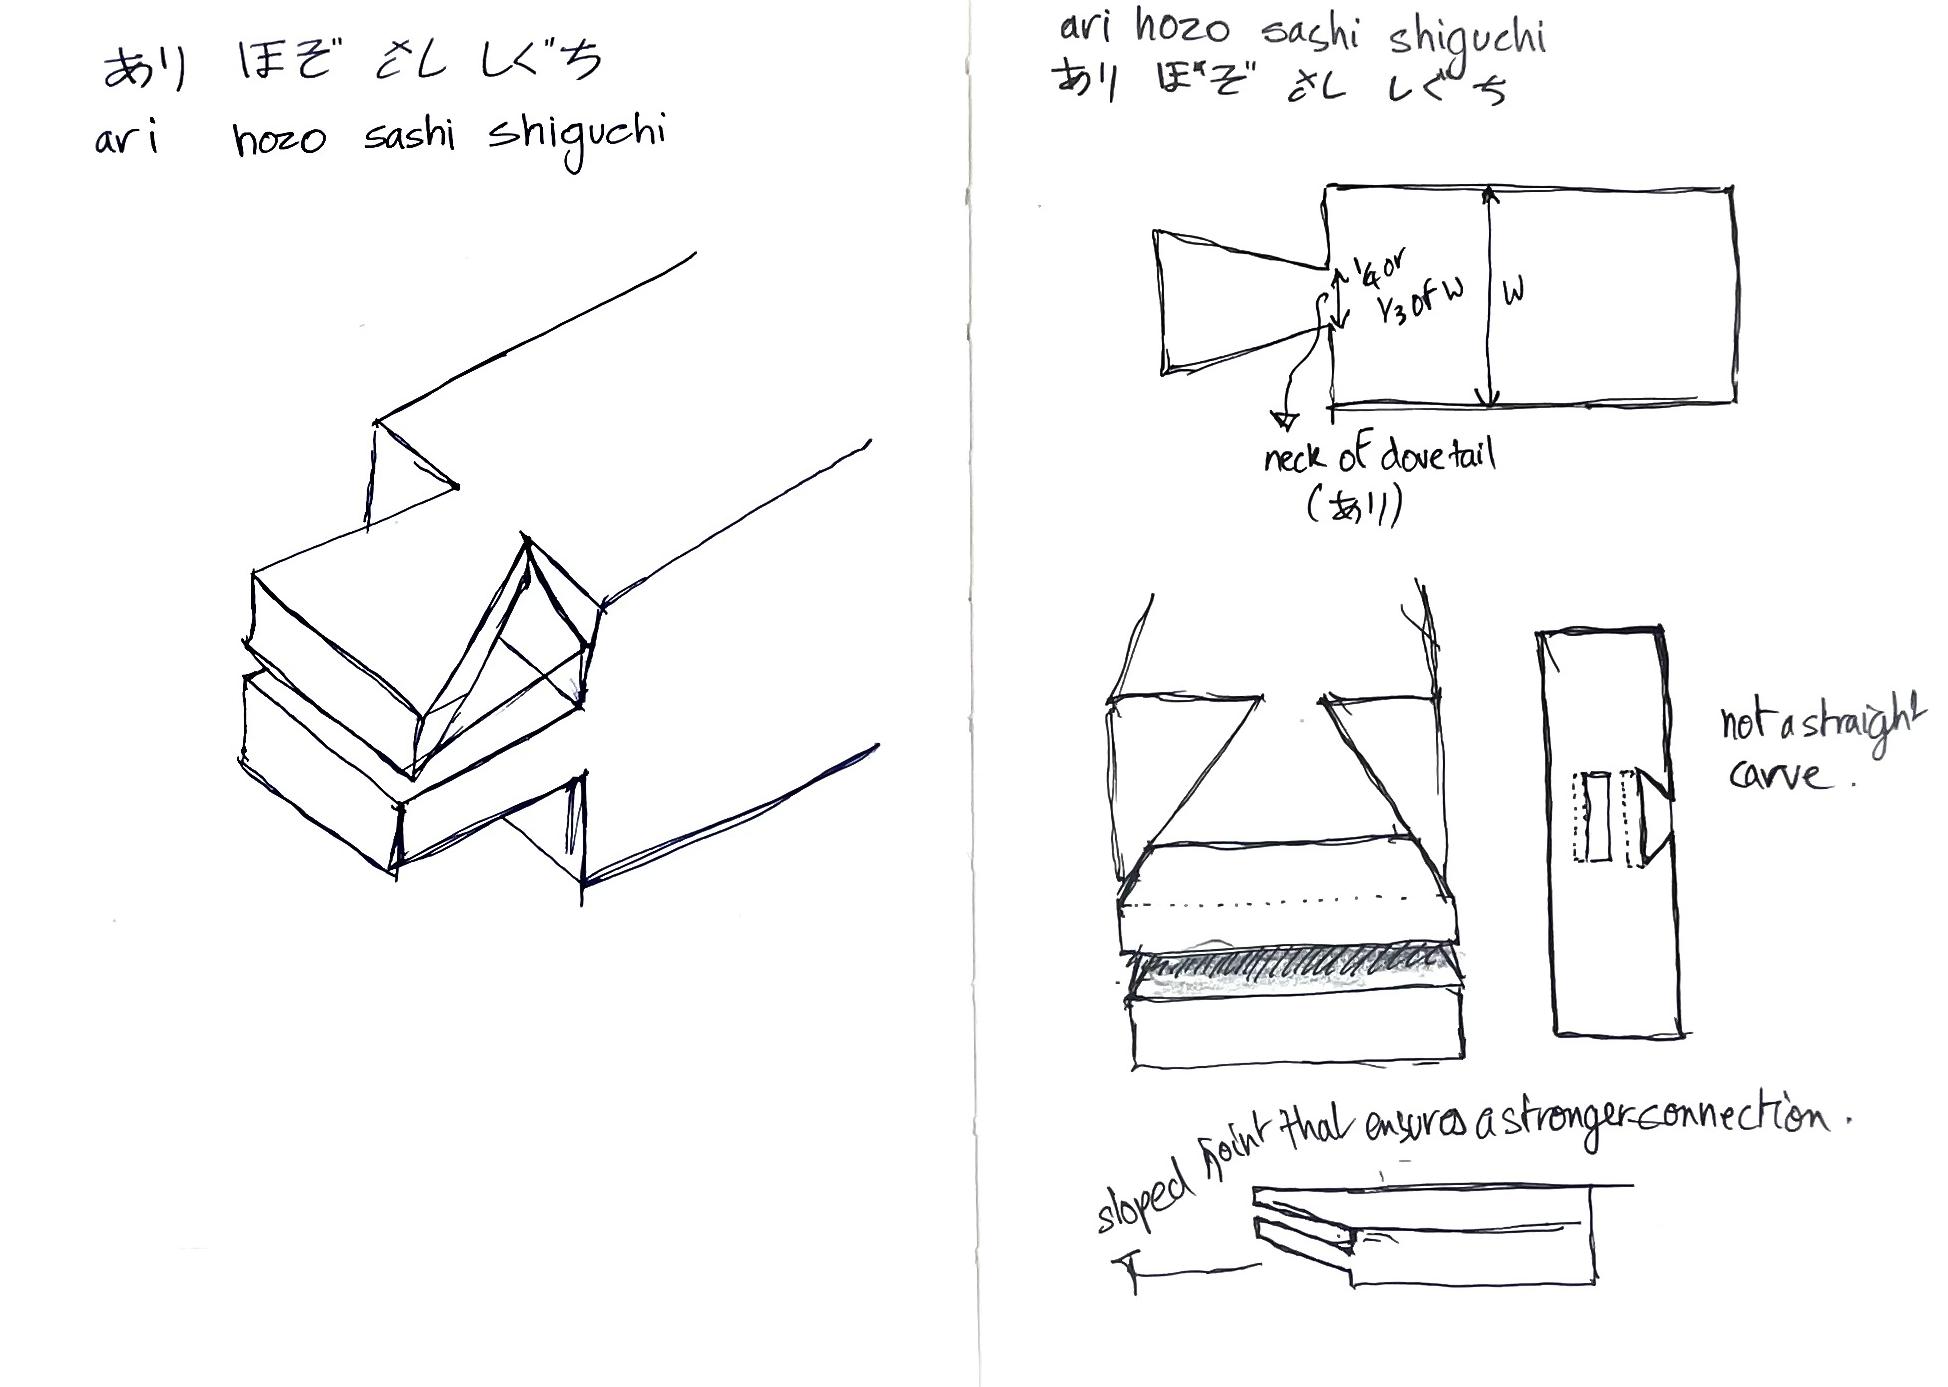 あり ほぞ さし しぐち
ari hozo sashi shiguchi
ari hozo sashi shiguchi
あり ほぞ さし しぐち
1/4 or
1/3 of W
W
neck of dovetail
(あり)
not a straight
carve.
sloped point that ensures a stronger connection.